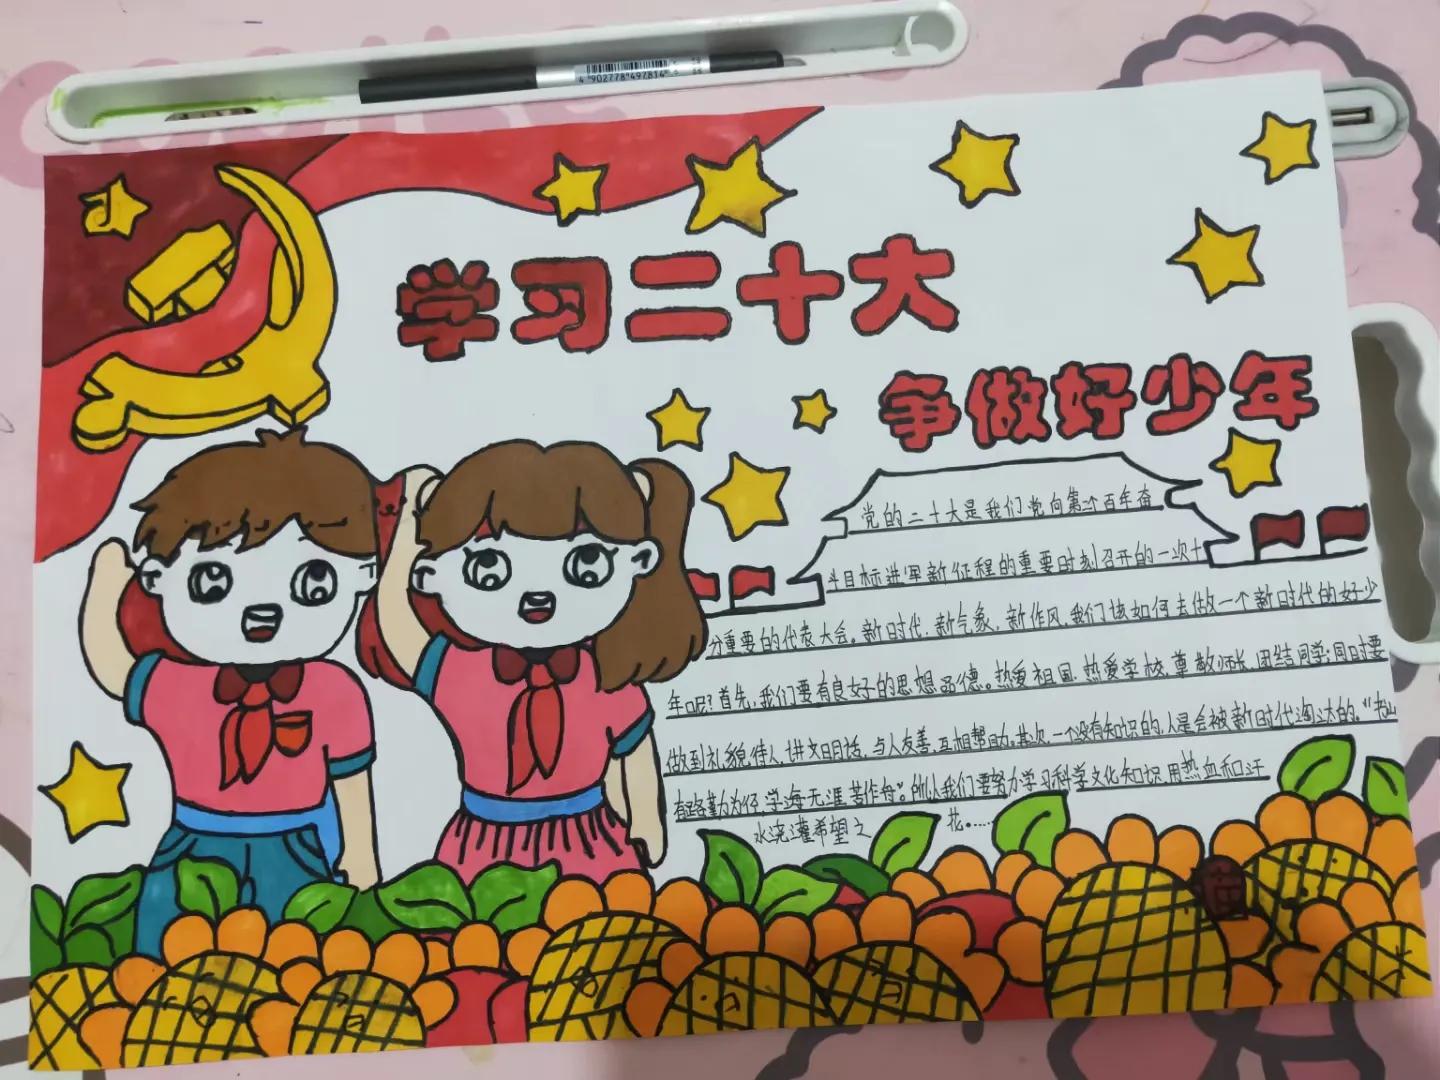 4902778497814
学习二十大
争做好少年
党的二十大是我们党向第二个百年奋
斗目标进军新征程的重要时刻召开的一次十
分重要的代表大会。新时代、新气象、新作风,我们该如何去做一个新时代的好少
年呢?首先,我们要有良好的思想品德。热爱祖国,热爱学校,尊敬师长,团结同学;同时要
做到礼貌待人,讲文明话,与人友善,互相帮助。其次,一个没有知识的人是会被新时代淘汰的。“书山
有路勤为径,学海无涯苦作舟”。所以我们要努力学习科学文化知识,用热血和汗
水浇灌希望之花。……